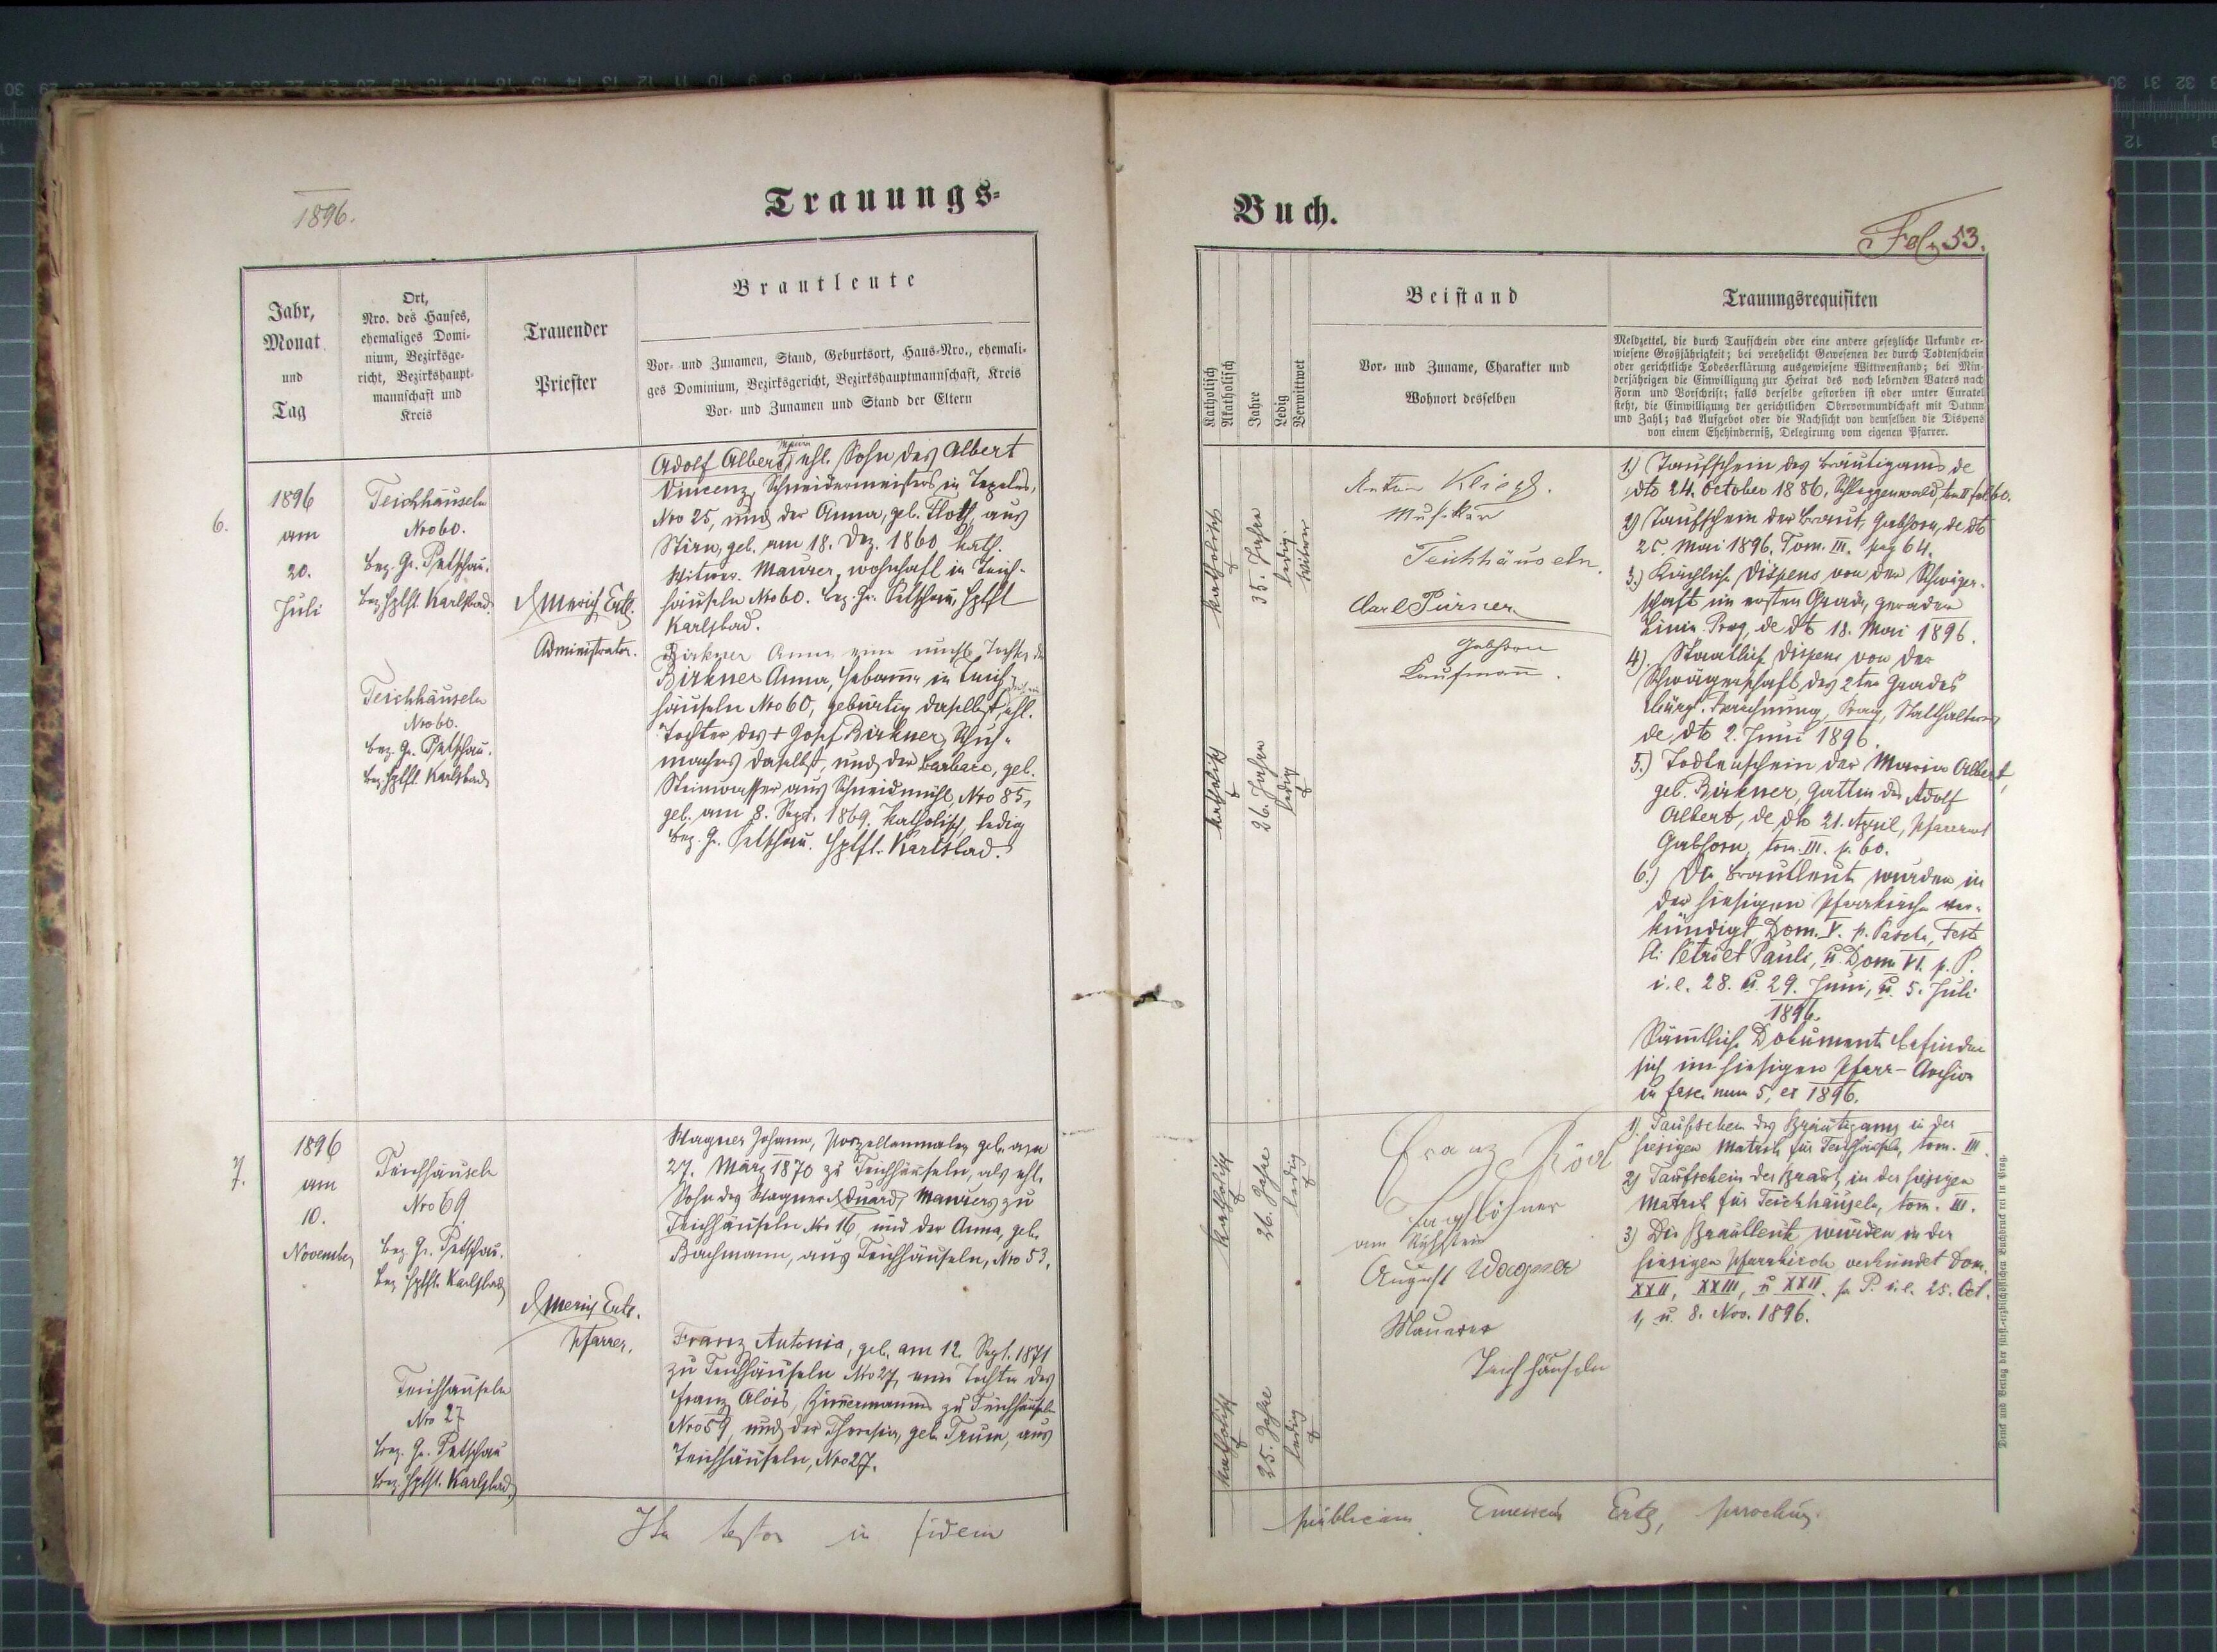 1896.
Trauungs-
Jahr,
Monat
und
Tag
Ort,
Nro. des Hauses,
ehemaliges Domi-
nium, Bezirksge-
richt, Bezirkshaupt-
mannschaft und
Kreis
Trauender
Priester
Brautleute
Vor- und Zunamen, Stand, Geburtsort, Haus-Nro., ehemali-
ges Dominium, Bezirksgericht, Bezirkshauptmannschaft, Kreis
Vor- und Zunamen und Stand der Eltern
6.
1896
am
20.
Juli
Teichhäuseln
Nro 60.
Bez. Gr. Petschau.
Bez. Hptsft. Karlsbad
Emerich Ertl.
Administrator.
Adolf Albert, ehl. Sohn des Albert
Vincenz, Schneidermeisters in Tepeles,
Nro 25, und der Anna, geb. Floth, aus
Stirn, geb. am 18. Dez. 1860, kath.
Witwer. Maurer, wohnhaft in Teich-
häuseln Nro 60. Bez. Gr. Petschau, Hptsft
Karlsbad.
Birkner Anna
Teichhäuseln
Nro 60.
Bez. Gr. Petschau.
Bez. Hptsft. Karlsbad
Birkner Anna, Hebamme in Teich-
häuseln Nro 60, gebürtig daselbst, ehl.
Tochter des + Josef Birkner, Schuh-
machers daselbst, und der Barbara, geb.
Steinwasser aus Schneidmühl, Nro 85,
geb. am 8. Sept. 1869. Katholisch, ledig
Bez. Gr. Petschau. Hptsft. Karlsbad.
7.
1896
am
10.
November
Teichhäuseln
Nro 69
Bez. Gr. Petschau.
Bez. Hptsft. Karlsbad
Emerich Ertl.
Pfarrer.
Wagner Johann, Porzellanmaler, geb. am
27. März 1870 zu Teichhäuseln, als ehl.
Sohn des Wagner Eduard, Maurers zu
Teichhäuseln Nr. 16, und der Anna, geb.
Bachmann, aus Teichhäuseln, Nro 53.
Teichhäuseln
Nro 27
Bez. Gr. Petschau
Bez. Hptsft. Karlsbad
Franz Antonia, geb. am 12. Sept. 1871
zu Teichhäuseln Nro 27, eine Tochter des
Franz Alois, Zimmermanns zu Teichhäuseln
Nro 59, und der Theresia, geb. Trum, aus
Teichhäuseln, Nro 27.
Ita testor in fidem
Buch.
Fol. 53.
Katholisch
Akatholisch
Jahre
Ledig
Verwittwet
Beistand
Vor- und Zuname, Charakter und
Wohnort desselben
Trauungsrequisiten
Meldzettel, die durch Taufschein oder eine andere gesetzliche Urkunde er-
wiesene Großjährigkeit; bei verehelicht Gewesenen der durch Todtenschein
oder gerichtliche Todeserklärung ausgewiesene Wittwenstand; bei Min-
derjährigen die Einwilligung zur Heirat des noch lebenden Vaters nach
Form und Vorschrift; falls derselbe gestorben ist oder unter Curatel
steht, die Einwilligung der gerichtlichen Obervormundschaft mit Datum
und Zahl; das Aufgebot oder die Nachsicht von demselben die Dispens
von einem Ehehinderniß, Delegirung vom eigenen Pfarrer.
katholisch
35. Jahre
ledig.
Witwer
katholisch
26. Jahre
ledig
Anton Kliegl.
Musiker
Teichhäuseln.
Carl Pürner
Gabhorn
Kaufmann.
1.) Taufschein des Bräutigams de
dto 24. October 1886, Schlaggenwald, tom II fol 60.
2) Taufschein der Braut, Gabhorn, de dto
25. Mai 1896. Tom. III. pag 64.
3.) Kirchliche Dispens von der Schwäger-
schaft im ersten Grade, gerader
Linie. Prag, de dto 18. Mai 1896.
4). Staatliche Dispens von der
Schwägerschaft des 2ten Grades
bürg. Berechnung, Prag, Statthalterei
de dto 2. Juni 1896.
5.) Todtenschein der Maria Albert,
geb. Birkner, Gattin des Adolf
Albert, de dto 21. April, Pfarramt
Gabhorn, tom. III. p. 60.
6.) Die Brautleute wurden in
der hiesigen Pfarrkirche ver-
kündigt Dom. V. p. Pasch., Festo
St. Petri et Pauli, u. Dom VI. p. P.
i. e. 28. u. 29. Juni, u. 5. Juli
1896.
Sämmtliche Dokumente befinden
sich im hiesigen Pfarr-Archiv
in fasc. num 5, ex 1896.
katholisch
26. Jahre
ledig
katholisch
25. Jahre
ledig
Franz Röd
Taglöhner
am
August Wagner
Maurer
Teichhäuseln
1) Taufschein des Bräutigams in der
hiesigen Matrik für Teichhäuseln, tom. III.
2) Taufschein der Braut, in der hiesigen
Matrik für Teichhäuseln, tom. III.
3) Die Brautleute wurden in der
hiesigen Pfarrkirche verkündet Dom.
XXII, XXIII, u XXIV. p. P. i. e. 25. Oct.
1, u. 8. Nov. 1896.
publicam Emericus Ertl, parochus.